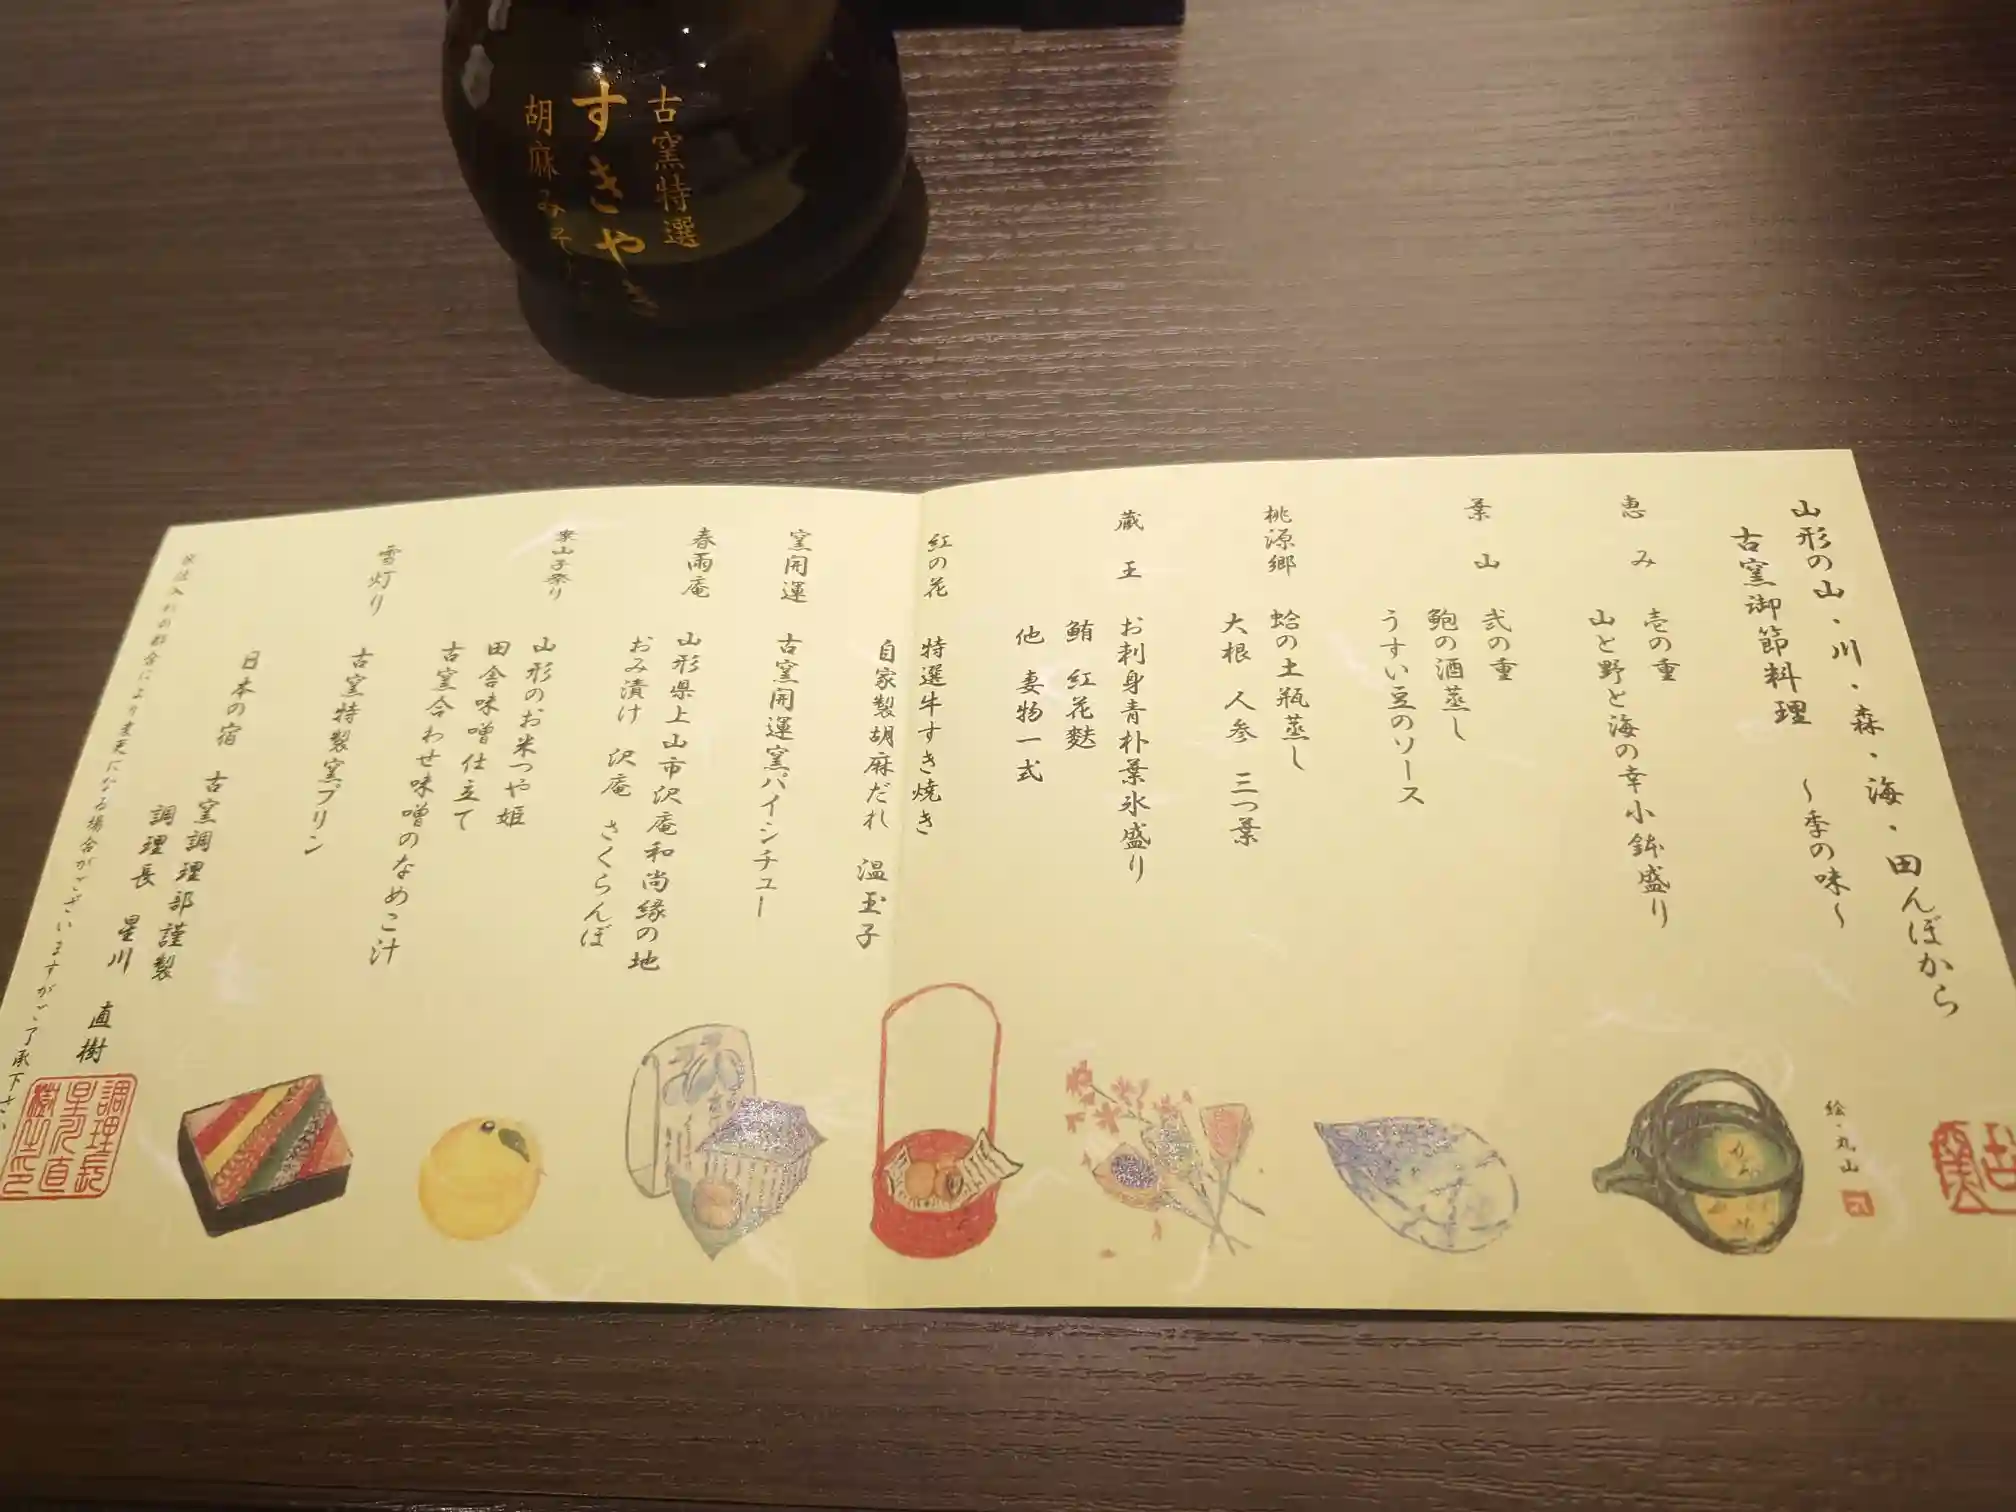 古窯特選
すきやき
胡麻みそ
山形の山・川・森・海・田んぼから
古窯御節料理 ~季の味~
恵み
壱の重
山と野と海の幸小鉢盛り
葉山
弐の重
鮑の酒蒸し
うすい豆のソース
桃源郷
蛤の土瓶蒸し
大根 人参 三つ葉
蔵王
お刺身青朴葉氷盛り
鮪 紅花麩
他 妻物一式
紅の花
特選牛すき焼き
自家製胡麻だれ 温玉子
窯開運
古窯開運窯パイシチュー
春雨庵
山形県上山市沢庵和尚縁の地
おみ漬け 沢庵 さくらんぼ
案山子祭り
山形のお米つや姫
田舎味噌仕立て
古窯合わせ味噌のなめこ汁
雪灯り
古窯特製窯プリン
日本の宿 古窯調理部謹製
調理長 星川 直樹
仕入れの都合により変更になる場合がございますがご了承下さい
絵・丸山
古窯
調理長
星川直
樹之印